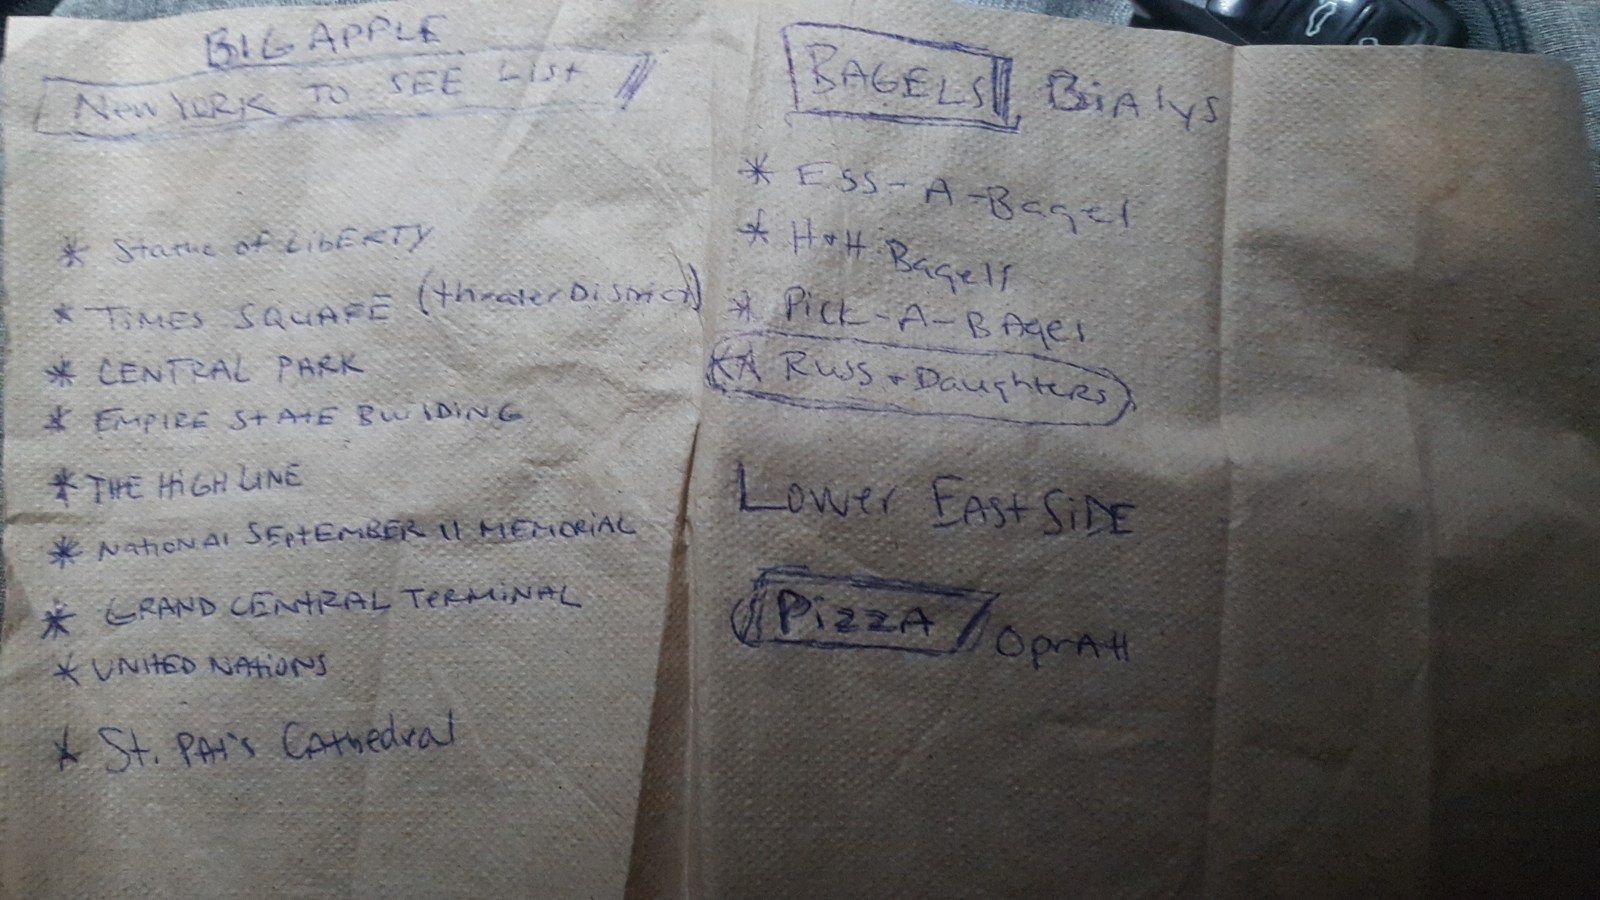 BIG APPLE
New YORK TO SEE LIST
* Statue of LibERTY
* TIMES SQUARE (theater District)
* CENTRAL PARK
* EMPIRE STATE BUILDING
* THE HIGH LINE
* NATIONAL SEPTEMBER 11 MEMORIAL
* GRAND CENTRAL TERMINAL
* UNITED NATIONS
* St. PAt's Cathedral
BAGELS Bialys
* ESS-A-Bagel
* H+H Bagels
* Pick-A-BAgel
** Russ + Daughters
Lower EAst SiDE
PizzA OprAH